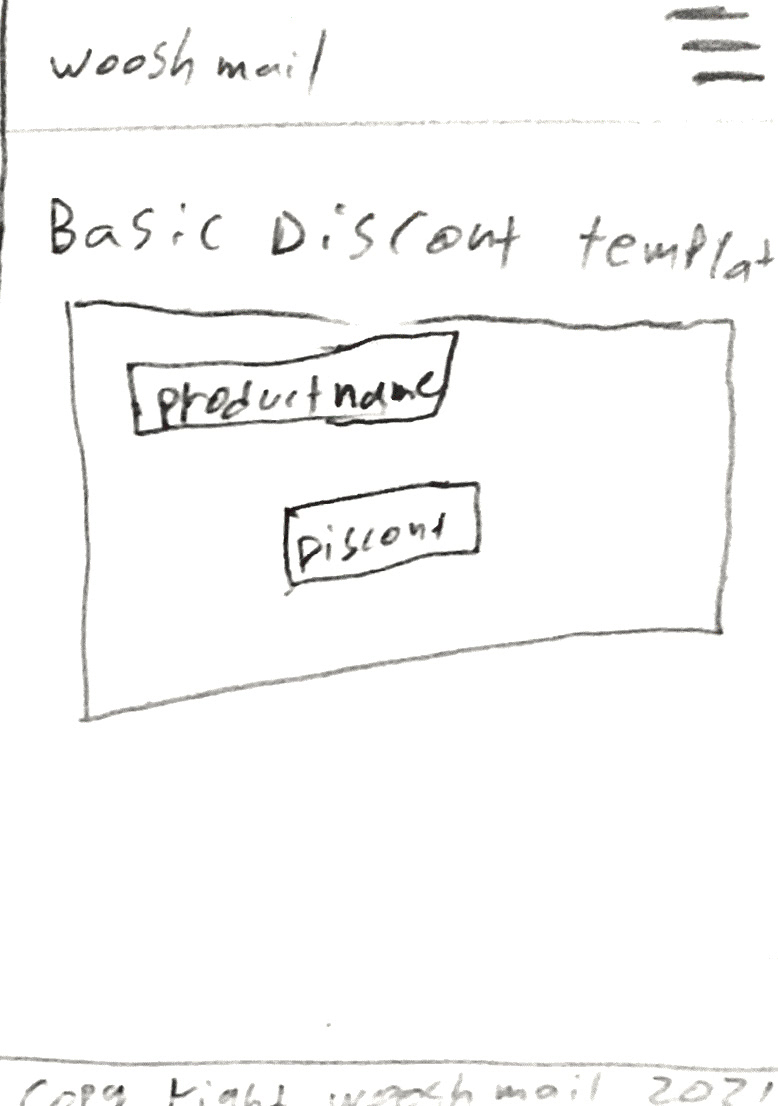 woosh mail
Basic Discont templat
product name
Discont
Copy right woosh mail 2021